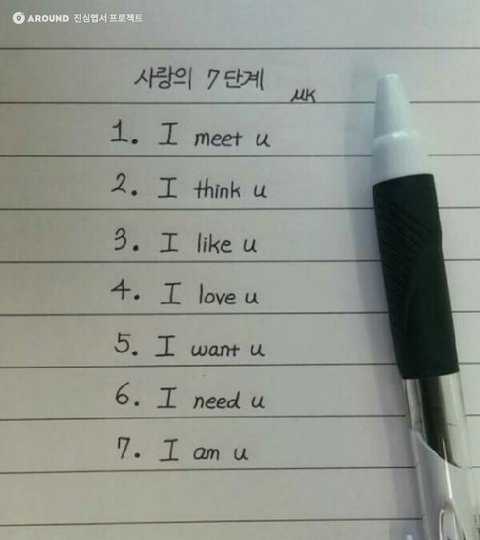 AROUND 진심엽서 프로젝트
사랑의 7단계
MK
1. I meet u
2. I think u
3. I like u
4. I love u
5. I want u
6. I need u
7. I am u